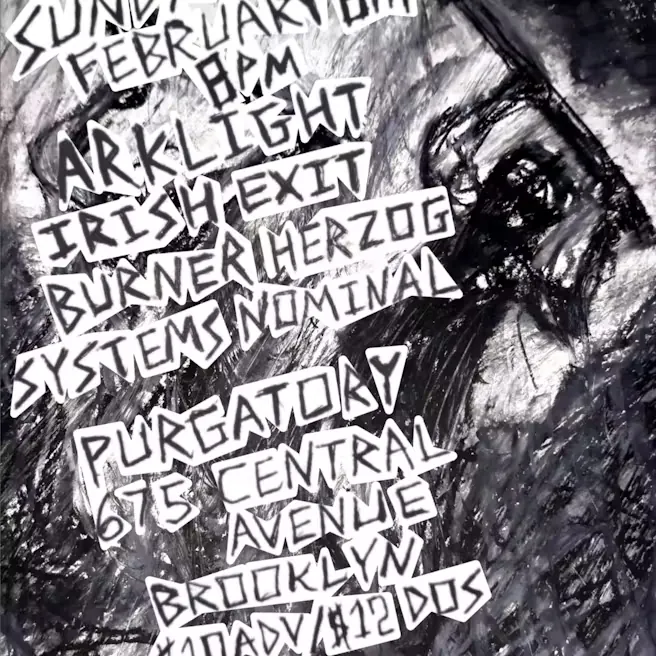 SUNDAY
FEBRUARY 8TH
8PM
ARKLIGHT
IRISH EXIT
BURNER HERZOG
SYSTEMS NOMINAL
PURGATORY
675 CENTRAL
AVENUE
BROOKLYN
$10ADV/$12 DOS